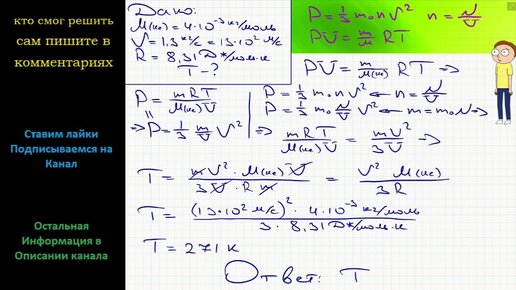 кто смог решить
сам пишите в
комментариях
Ставим лайки
Подписываемся на
Канал
Остальная
Информация в
Описании канала
Дано:
M(не) = 4·10⁻³ кг/моль
V = 1,3 км/с = 13·10² м/с
R = 8,31 Дж/моль·к
T - ?
P = 1/3 m₀ n V² n = N/V
PV = m/M RT
PV = m/M(не) RT =>
P = mRT/M(не)V
P = 1/3 m₀ n V² ← n = N/V
P = 1/3 m₀ N/V V² ← m = m₀N =>
=> P = 1/3 m/V V² => mRT/M(не)V = mV²/3V =>
T = mV²·M(не)V/3V·Rm = V² M(не)/3R
T = (13·10² м/с)²·4·10⁻³ кг/моль/3·8,31 Дж/моль·к
T = 271 к
Ответ: T